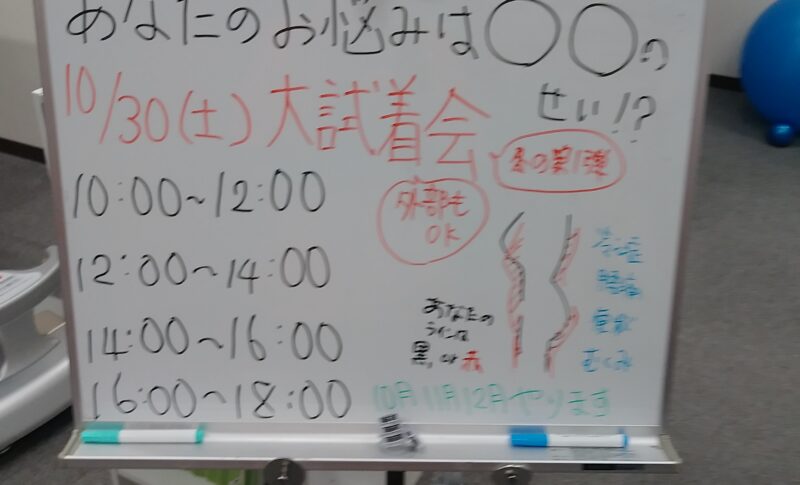 あなたのお悩みは〇〇の
せい!?
10/30(土)大試着会
冬の第1弾
外部も
OK
10:00~12:00
12:00~14:00
14:00~16:00
16:00~18:00
あなたの
ラインは
黒 or 赤
冷え症
腰痛
便秘
むくみ
10月11月12月やります